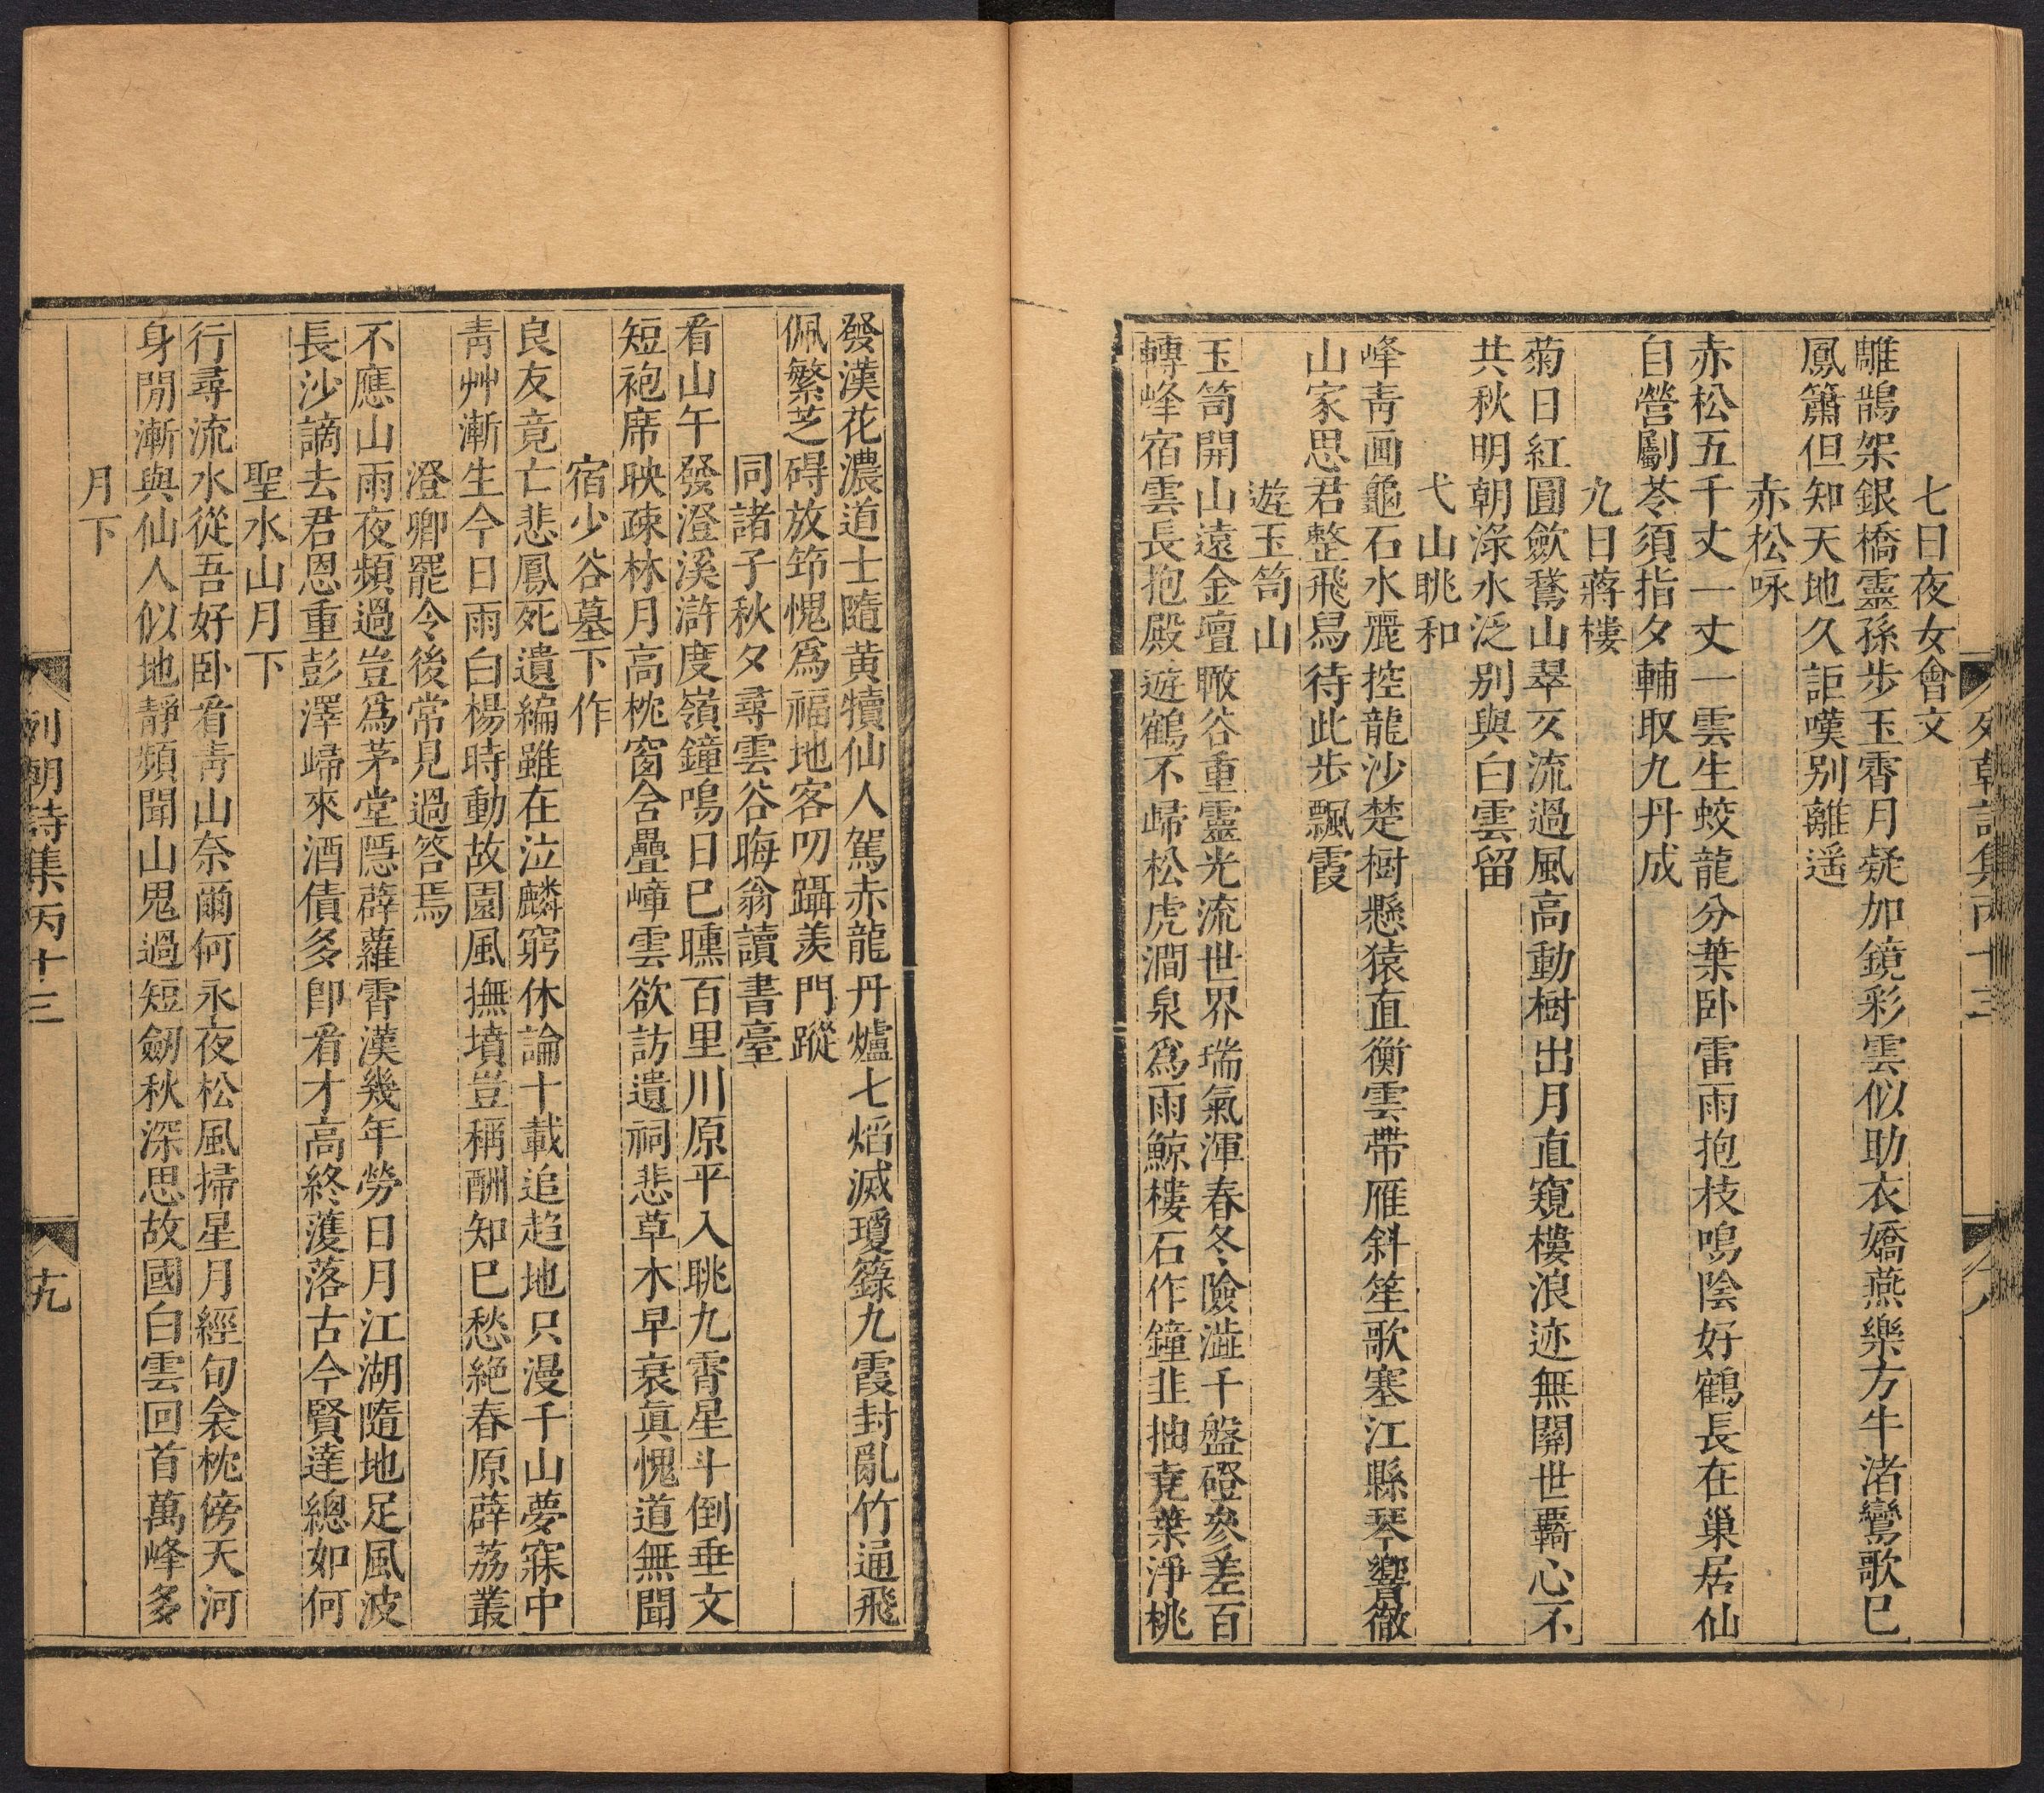 七日夜女會文
雕鵲架銀橋靈孫步玉霄月疑加鏡彩雲似助衣嬌燕樂方牛渚鸞歌已
鳳簫但知天地久詎嘆别離遥
赤松咏
赤松五千丈一丈一雲生蛟龍分葉卧雷雨抱枝鳴陰好鶴長在巢居仙
自營劚苓須指夕輔取九丹成
九日蔣樓
菊日紅圓歛鶩山翠交流過風高動樹出月直窺樓浪迹無關世覊心不
共秋明朝渌水泛别與白雲留
弋山眺和
峰靑画龜石水麗控龍沙楚樹懸猿直衡雲帶雁斜笙歌塞江縣琴響徹
山家思君整飛舄待此步飄霞
遊玉笥山
玉笥開山遠金壇瞰谷重靈光流世界瑞氣渾春冬險澁千盤磴參差百
轉峰宿雲長抱殿遊鶴不歸松虎澗泉爲雨鯨樓石作鐘韭抽堯葉淨桃
列朝詩集丙十三
十八
發漢花濃道士隨黄犢仙人駕赤龍丹爐七焰滅瓊籙九霞封亂竹通飛
佩繁芝碍放筇愧爲福地客叨躡羨門蹤
同諸子秋夕尋雲谷晦翁讀書臺
看山午發澄溪滸度嶺鐘鳴日巳曛百里川原平入眺九霄星斗倒垂文
短袍席映疎林月高枕窗含疊嶂雲欲訪遺祠悲草木早衰眞愧道無聞
宿少谷墓下作
良友竟亡悲鳳死遺編雖在泣麟窮休論十載追趋地只漫千山夢寐中
靑艸漸生今日雨白楊時動故園風撫墳豈稱酬知巳愁絶春原薜荔叢
澄卿罷令後常見過答焉
不應山雨夜頻過豈爲茅堂隱薜蘿霄漢幾年勞日月江湖隨地足風波
長沙謫去君恩重彭澤歸來酒債多卽看才高終濩落古今賢達總如何
聖水山月下
行尋流水從吾好卧看靑山奈爾何永夜松風掃星月經旬衾枕傍天河
身閒漸與仙人似地靜頻聞山鬼過短劒秋深思故國白雲回首萬峰多
月下
列朝詩集丙十三
十九